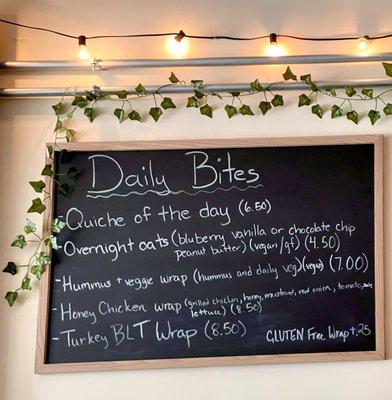 Daily Bites
Quiche of the day (6.50)
-Overnight oats (bluberry vanilla or chocolate chip
peanut butter) (vegan/gf) (4.50)
-Hummus + veggie wrap (hummus and daily veg) (vegan) (7.00)
-Honey Chicken wrap (grilled chicken, honey, mustard, red onion, tomato,
lettuce) (8.50)
-Turkey BLT Wrap (8.50)
GLUTEN Free Wrap +.25